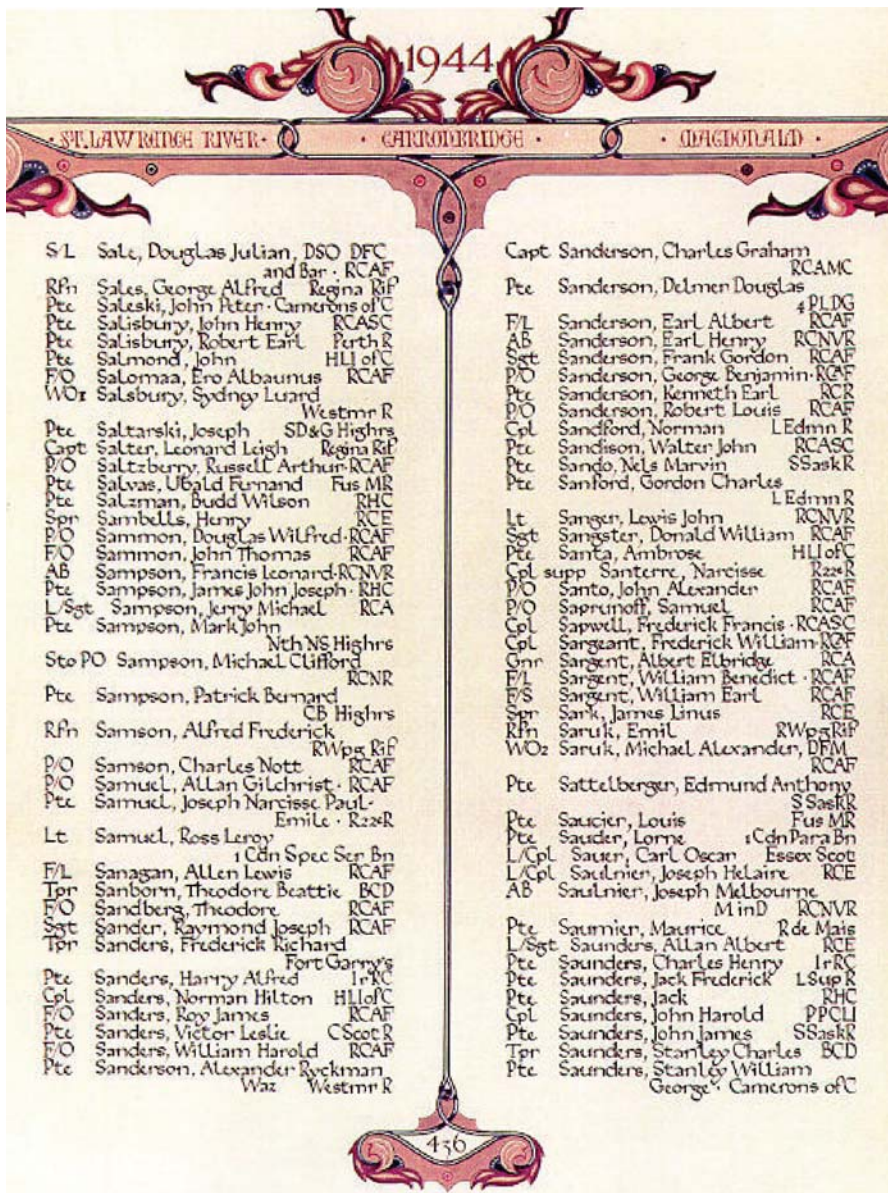 1944
· ST. LAWRENCE RIVER · · CARRONBRIDGE · · MACDONALD ·
S/L Sale, Douglas Julian, DSO DFC
and Bar · RCAF
Rfn Sales, George Alfred Regina Rif
Pte Saleski, John Peter · Camerons of C
Pte Salisbury, John Henry RCASC
Pte Salisbury, Robert Earl Perth R
Pte Salmond, John HLI of C
F/O Salomaa, Ero Albaunus RCAF
WO1 Salsbury, Sydney Luard
Westmr R
Pte Saltarski, Joseph SD&G Highrs
Capt Salter, Leonard Leigh Regina Rif
P/O Saltzberry, Russell Arthur · RCAF
Pte Salvas, Ubald Fernand Fus MR
Pte Salzman, Budd Wilson RHC
Spr Sambells, Henry RCE
P/O Sammon, Douglas Wilfred · RCAF
F/O Sammon, John Thomas RCAF
AB Sampson, Francis Leonard · RCNVR
Pte Sampson, James John Joseph · RHC
L/Sgt Sampson, Jerry Michael RCA
Pte Sampson, Mark John
Nth NS Highrs
Sto PO Sampson, Michael Clifford
RCNR
Pte Sampson, Patrick Bernard
CB Highrs
Rfn Samson, Alfred Frederick
RWpg Rif
P/O Samson, Charles Nott RCAF
P/O Samuel, Allan Gilchrist · RCAF
Pte Samuel, Joseph Narcisse Paul-
Emile · R22eR
Lt Samuel, Ross Leroy
1 Cdn Spec Ser Bn
F/L Sanagan, Allen Lewis RCAF
Tpr Sanborn, Theodore Beattie BCD
F/O Sandberg, Theodore RCAF
Sgt Sander, Raymond Joseph RCAF
Tpr Sanders, Frederick Richard
Fort Garry's
Pte Sanders, Harry Alfred IrRC
Cpl Sanders, Norman Hilton HLI of C
F/O Sanders, Roy James RCAF
Pte Sanders, Victor Leslie C Scot R
F/O Sanders, William Harold RCAF
Pte Sanderson, Alexander Ryckman
Waz Westmr R
Capt Sanderson, Charles Graham
RCAMC
Pte Sanderson, Delmer Douglas
4 PLDG
F/L Sanderson, Earl Albert RCAF
AB Sanderson, Earl Henry RCNVR
Sgt Sanderson, Frank Gordon RCAF
P/O Sanderson, George Benjamin · RCAF
Pte Sanderson, Kenneth Earl RCR
P/O Sanderson, Robert Louis RCAF
Cpl Sandford, Norman L Edmn R
Pte Sandison, Walter John RCASC
Pte Sando, Nels Marvin SSaskR
Pte Sanford, Gordon Charles
L Edmn R
Lt Sanger, Lewis John RCNVR
Sgt Sangster, Donald William RCAF
Pte Santa, Ambrose HLI of C
Cpl supp Santerre, Narcisse R22eR
P/O Santo, John Alexander RCAF
P/O Saprunoff, Samuel RCAF
Cpl Sapwell, Frederick Francis · RCASC
Cpl Sargeant, Frederick William · RCAF
Gnr Sargent, Albert Elbridge RCA
F/L Sargent, William Benedict · RCAF
F/S Sargent, William Earl RCAF
Spr Sark, James Linus RCE
Rfn Saruk, Emil RWpg Rif
WO2 Saruk, Michael Alexander, DFM
RCAF
Pte Sattelberger, Edmund Anthony
S SaskR
Pte Saucier, Louis Fus MR
Pte Sauder, Lorne 1 Cdn Para Bn
L/Cpl Sauer, Carl Oscar Essex Scot
L/Cpl Saulnier, Joseph HeLaire RCE
AB Saulnier, Joseph Melbourne
M in D RCNVR
Pte Saumier, Maurice R de Mais
L/Sgt Saunders, Allan Albert RCE
Pte Saunders, Charles Henry IrRC
Pte Saunders, Jack Frederick L Sup R
Pte Saunders, Jack RHC
Cpl Saunders, John Harold PPCLI
Pte Saunders, John James SSaskR
Tpr Saunders, Stanley Charles BCD
Pte Saunders, Stanley William
George · Camerons of C
436